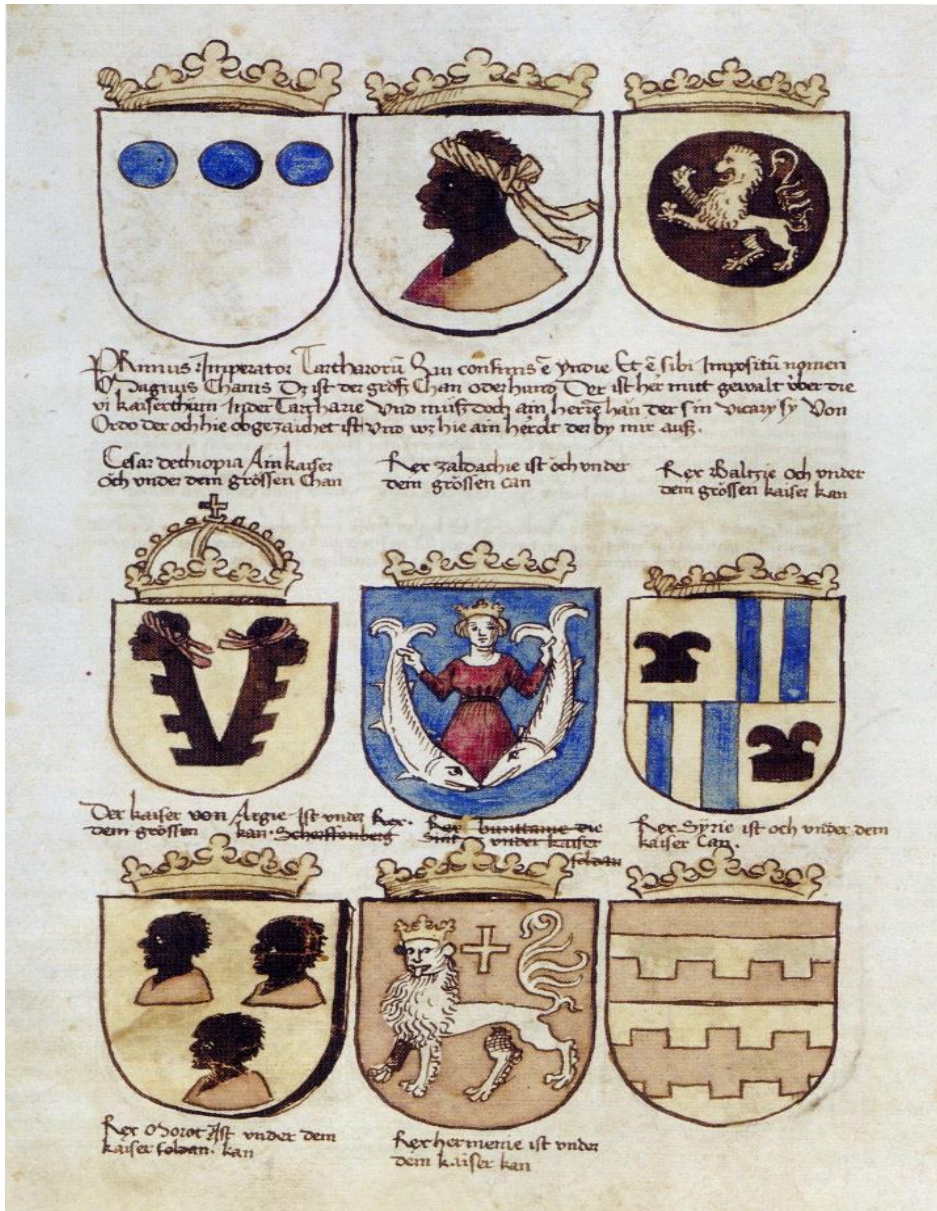 PRimus Imperator Tartharorū Sui confinis ē yndie Et ē sibi Impositū nomen
Magnus Chanis Dz ist der groß Chan oder hund Der ist her mitt gewalt über die
vi kaiserthum In der Tartharie Vnd muß doch ain herrē han der sin vicary sy Von
Ordo der och hie obgezaichet ist vnd wz hie ain herolt der by mir auß.
Cesar dethiopia Ain kaiser
och vnder dem grössen Chan
Rex zaldachie ist och vnder
dem grössen can
Rex Baltzie och vnder
dem grössen kaiser kan
Der kaiser von Argie Ist vnder Rex.
dem grössen kan. Scherffenberg
Rex die
Sint vnder kaiser
soldan
Rex Syrie ist och vnder dem
kaiser Can.
Rex Morot Ist vnder dem
kaiser soldan. kan
Rex hermenie ist vnder
dem kaiser kan